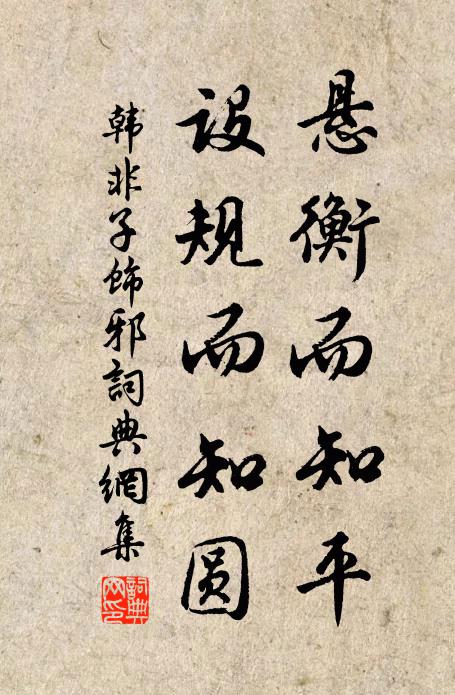 悬衡而知平
设规而知圆
韩非子饰邪词典網集
詞典网印